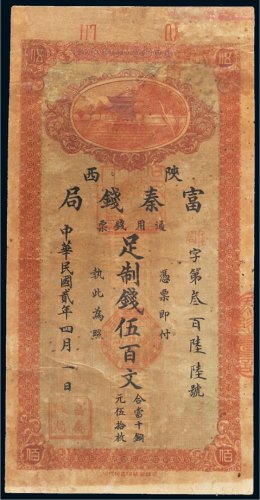 陝西
富秦錢局
通用錢票
字第叁百陸陸號
憑票即付
足制錢伍百文
合當十銅
元伍拾枚
執此為照
中華民國貳年四月一日
佰
佰
佰
佰